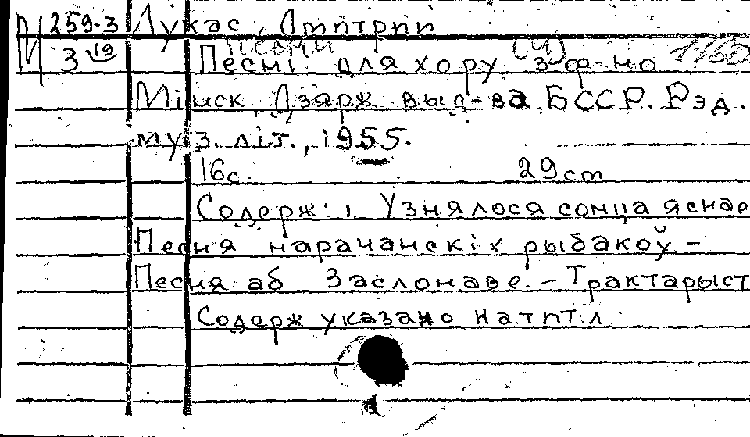 М 259-3 Лукас, Дмитрий
3 19 Песни (Ч)
Песні для хору з ф-но
Мінск, Дзярж. выд-ва БССР. Рэд.
муз. літ., 1955.
16с. 29cm
Содерж: Узнялося сонца яснае
Песня нарачанскіх рыбакоў -
Песня аб Заслонаве. - Трактарыст
Содерж указано на тит. л.